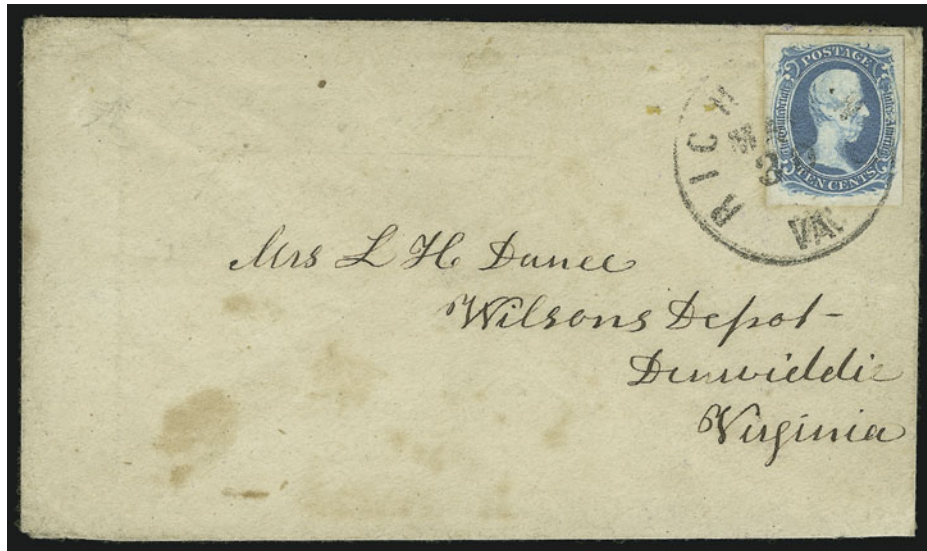 POSTAGE
The Confederate States of America
TEN CENTS
RICH
3
VA.
Mrs L H Dance
Wilsons Depot-
Dinwiddie
Virginia